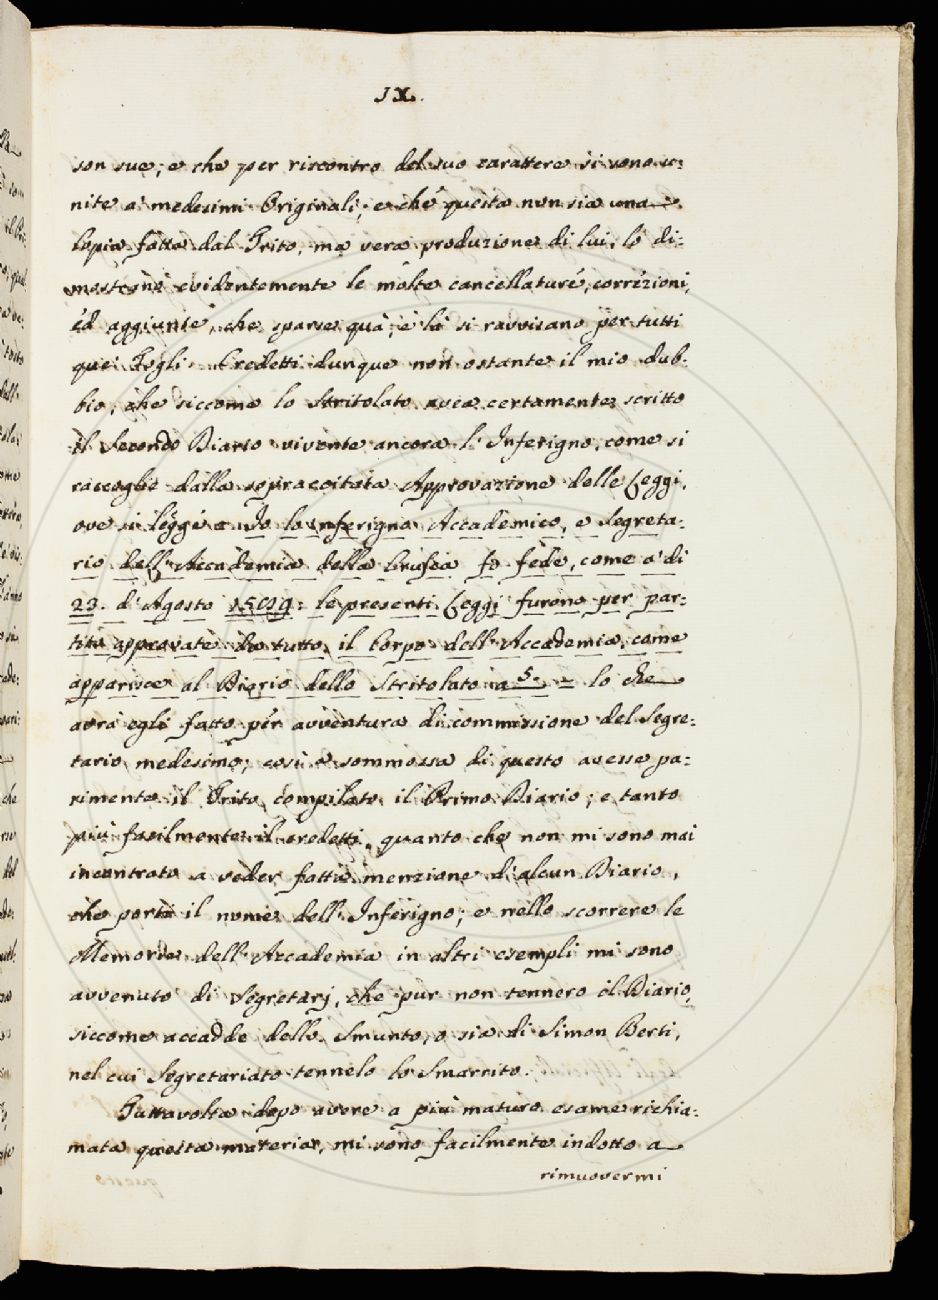 IX.
son sue; e che per riscontro del suo carattere si sono u=
nite a' medesimi Originali; e che questa non sia una
Copia fatta dal Trito, ma vera produzione di lui, lo di=
mostrano evidentemente le molte cancellature, correzioni,
ed aggiunte, che sparse quà, e là si ravvisano per tutti
quei Fogli. Credetti dunque non ostante il mio dub=
bio, che siccome lo Stritolato avea certamente scritto
il Secondo Diario vivente ancora l'Inferigno, come si
raccoglie dalla sopraccitata Approvazione delle Leggi,
ove si legge Io lo Inferigno Accademico, e Segreta=
rio dell'Accademia della Crusca fo fede, come a' dì
23. d'Agosto le presenti Leggi furono per par=
tito approvate da tutto il Corpo dell'Accademia, come
apparisce al Diario dello Stritolato a 5. = lo che
avrà egli fatto per avventura di commissione del Segre=
tario medesimo; così a sommossa di questo avesse pa=
rimente il Trito compilato il Primo Diario; e tanto
più facilmente il credetti, quanto che non mi sono mai
incontrato a veder fatta menzione di alcun Diario,
che porti il nome dell'Inferigno; e nello scorrere le
Memorie dell'Accademia in altri esempli mi sono
avvenuto di Segretarj, che pur non tennero il Diario,
siccome accadde dello Smunto, o sia di Simon Berti,
nel cui Segretariato tennelo lo Smarrito.
Tuttavolta dopo avere a più maturo esame richia=
mata questa materia, mi sono facilmente indotto a
rimuovermi